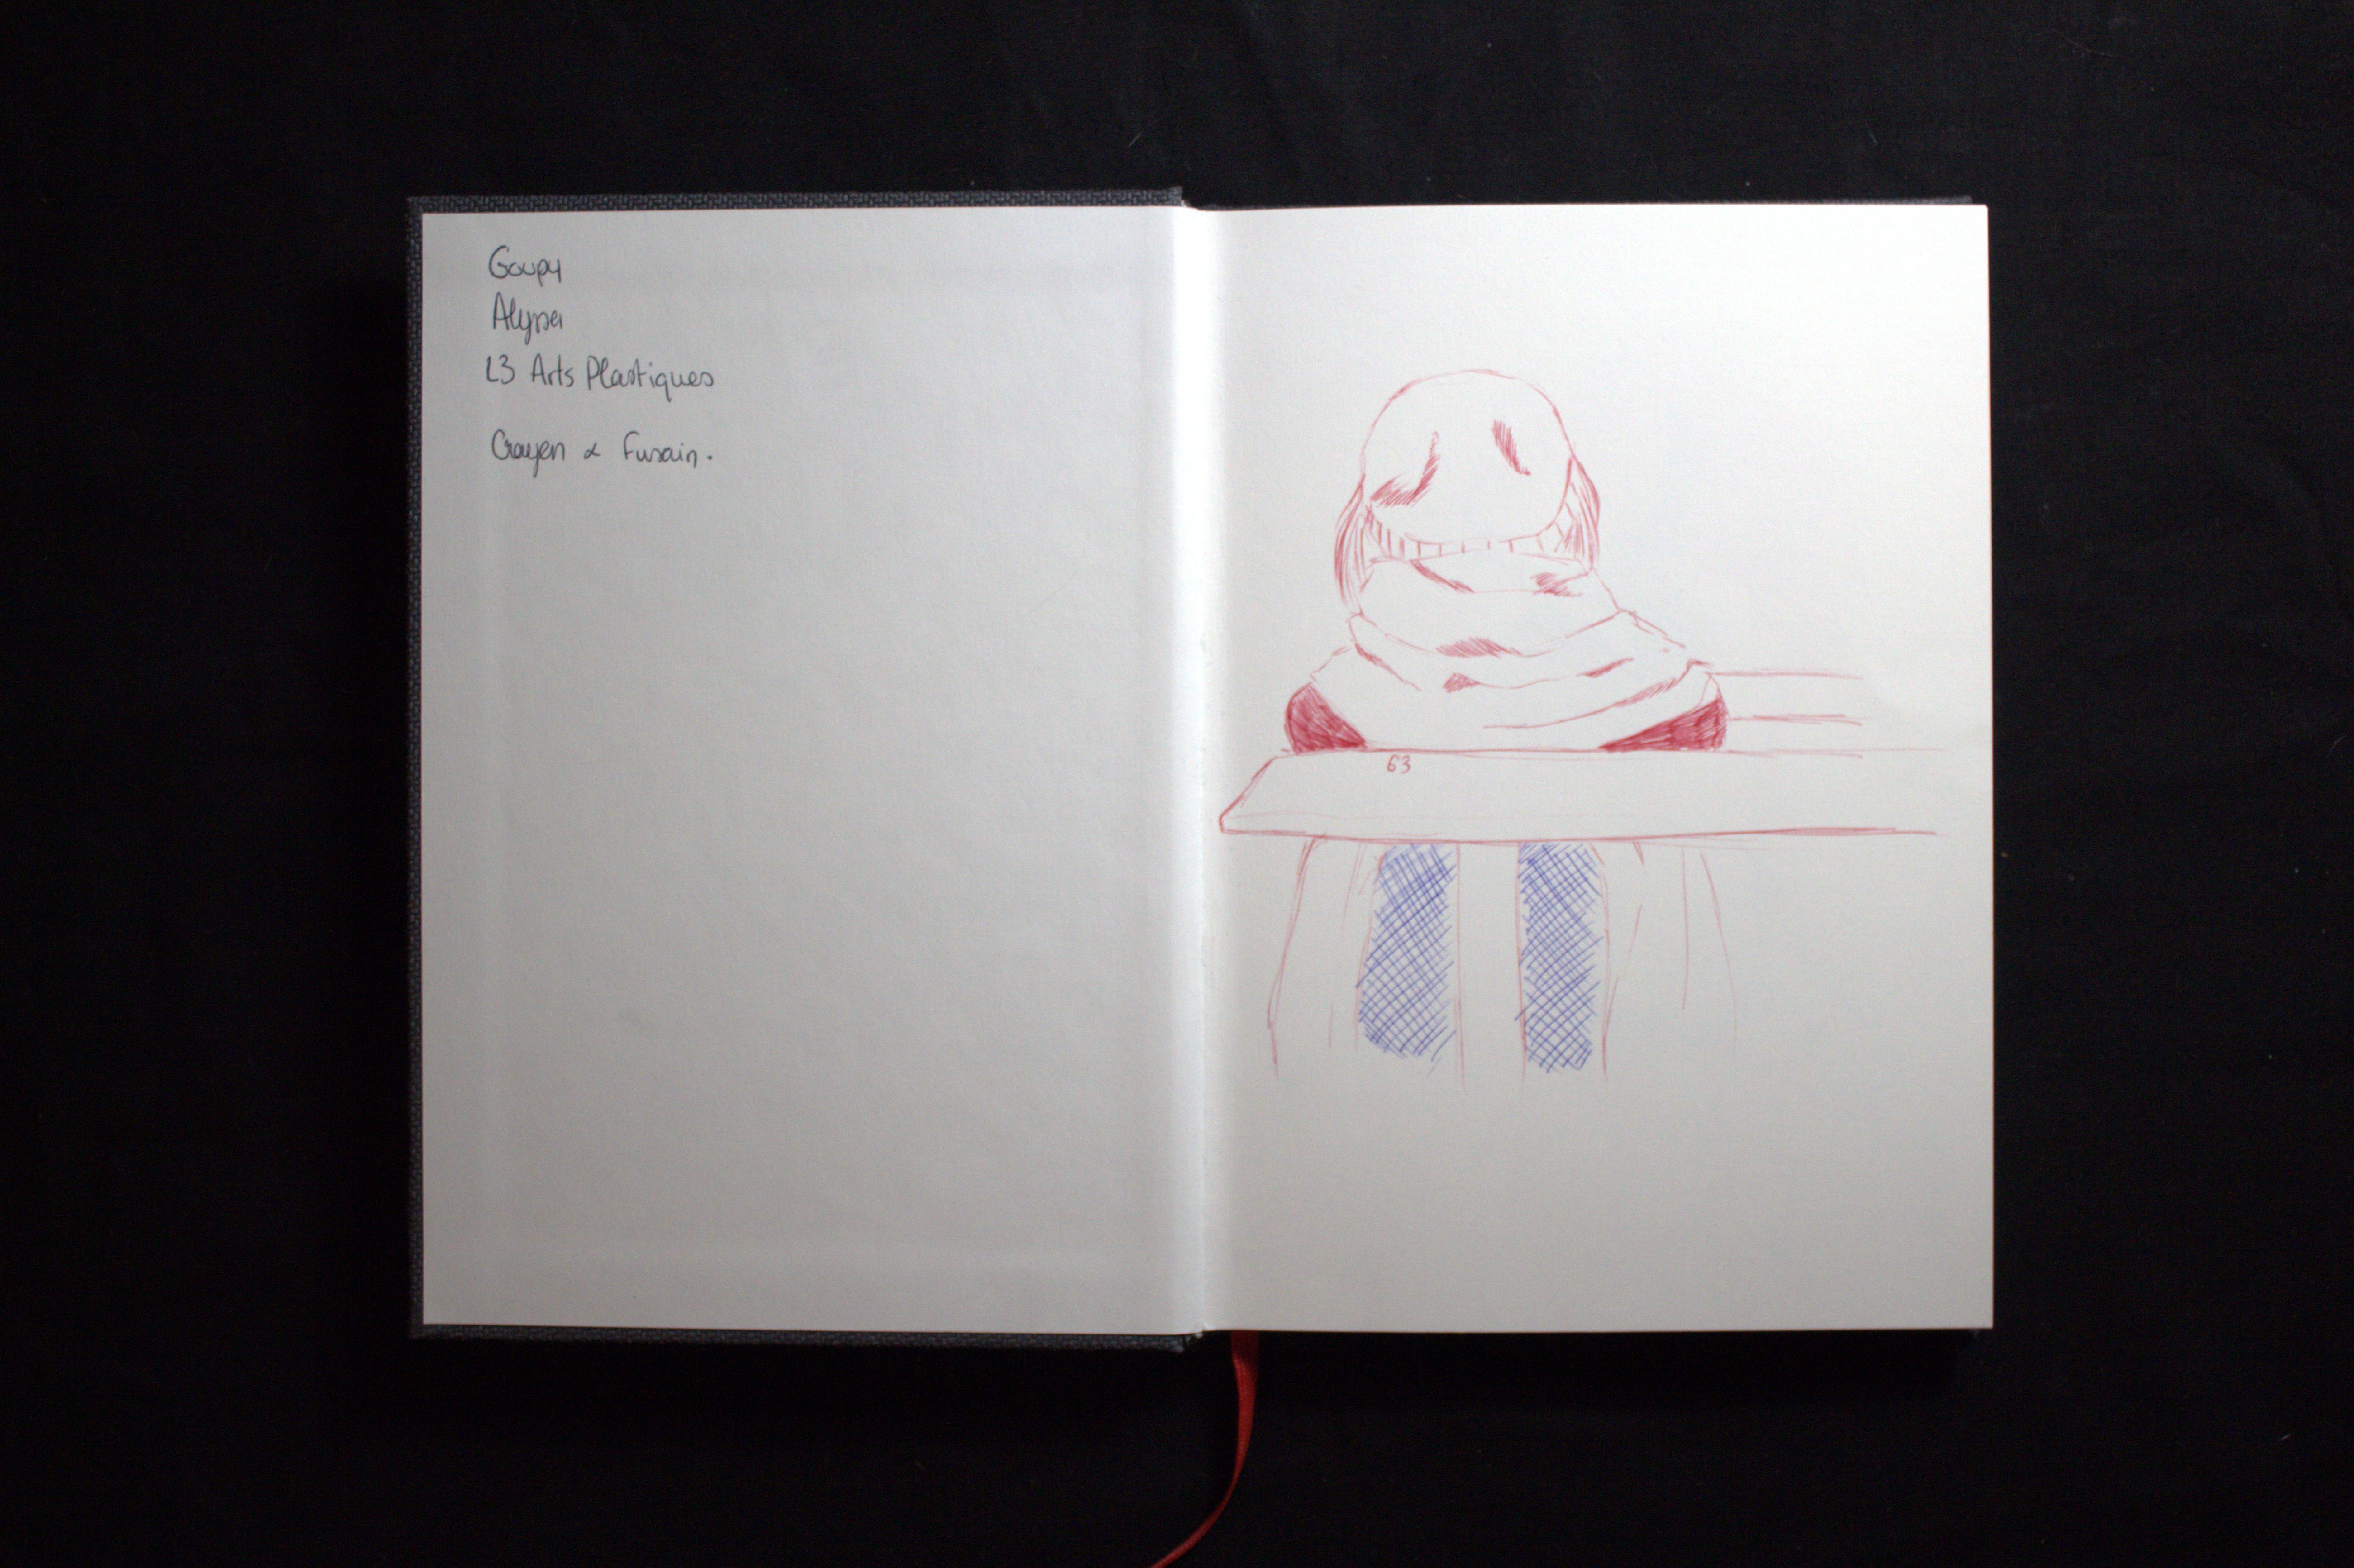 Goupy
Alyssa
L3 Arts Plastiques
Crayon & Fusain.
63